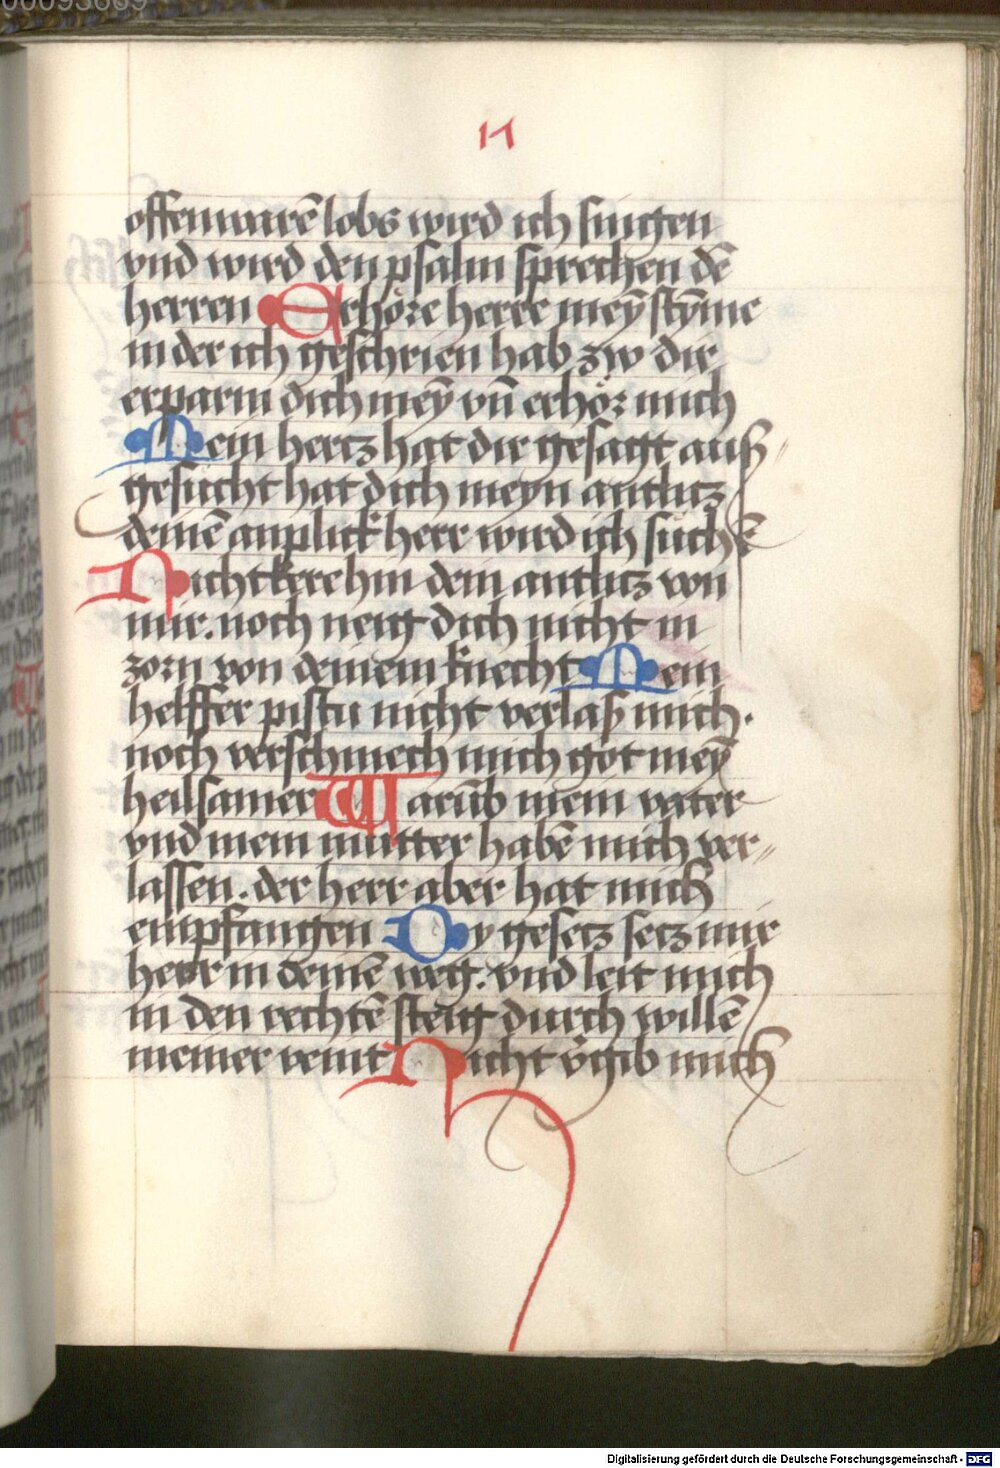 17
offenwarē lobs wird ich singen
vnd wird den psalm sprechen dē
herren Erhöre herre meȳ stȳme
in der ich geschrien hab zw dir
erparm dich meȳ vn̄ erhör mich
Mein hertz hat dir gesagt auß
gesucht hat dich meyn antlutz
deinē anplick herr wird ich suchē
Nicht kere hin dein antlutz von
mir. noch neig dich nicht in
zorn von deinem knecht Mein
helffer pistu nicht verlaß mich.
noch verschmech mich got meȳ
heilsamer Warūb mein vater
vnd mein mutter habē mich ver-
lassen. der herr aber hat mich
empfangen Dy gesetz setz mir
herr in deinē weg. vnd leit mich
in den rechtē steig durch willē
meiner veint Nicht v̄gib mich
Digitalisierung gefördert durch die Deutsche Forschungsgemeinschaft - DFG